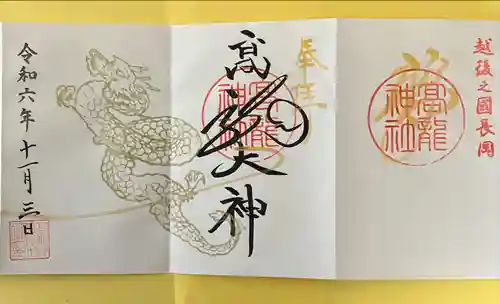 越後之國長岡
高龍
神社
奉拝
高龍大神
高龍
神社
令和六年十一月三日